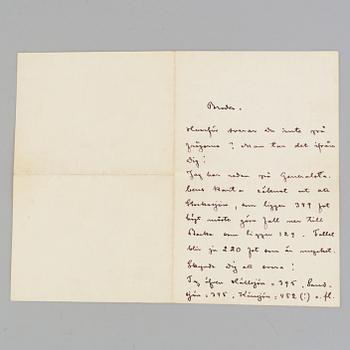 Broder.
Hvarför svarar du inte på
frågorna? Man tar det ifrån
Dig!
Jag har redan på Generalsta-
bens Karta räknat ut att
Storsjön, som ligger 349 fot
högt måste göra fall ner till
Backa som ligger 129. Fallet
blir ju 220 fot som är mycket.
Skynda Dig att svara!
Tag äfven Hällsjön = 395, Sand-
sjön = 395, = 452 (!) o. fl.